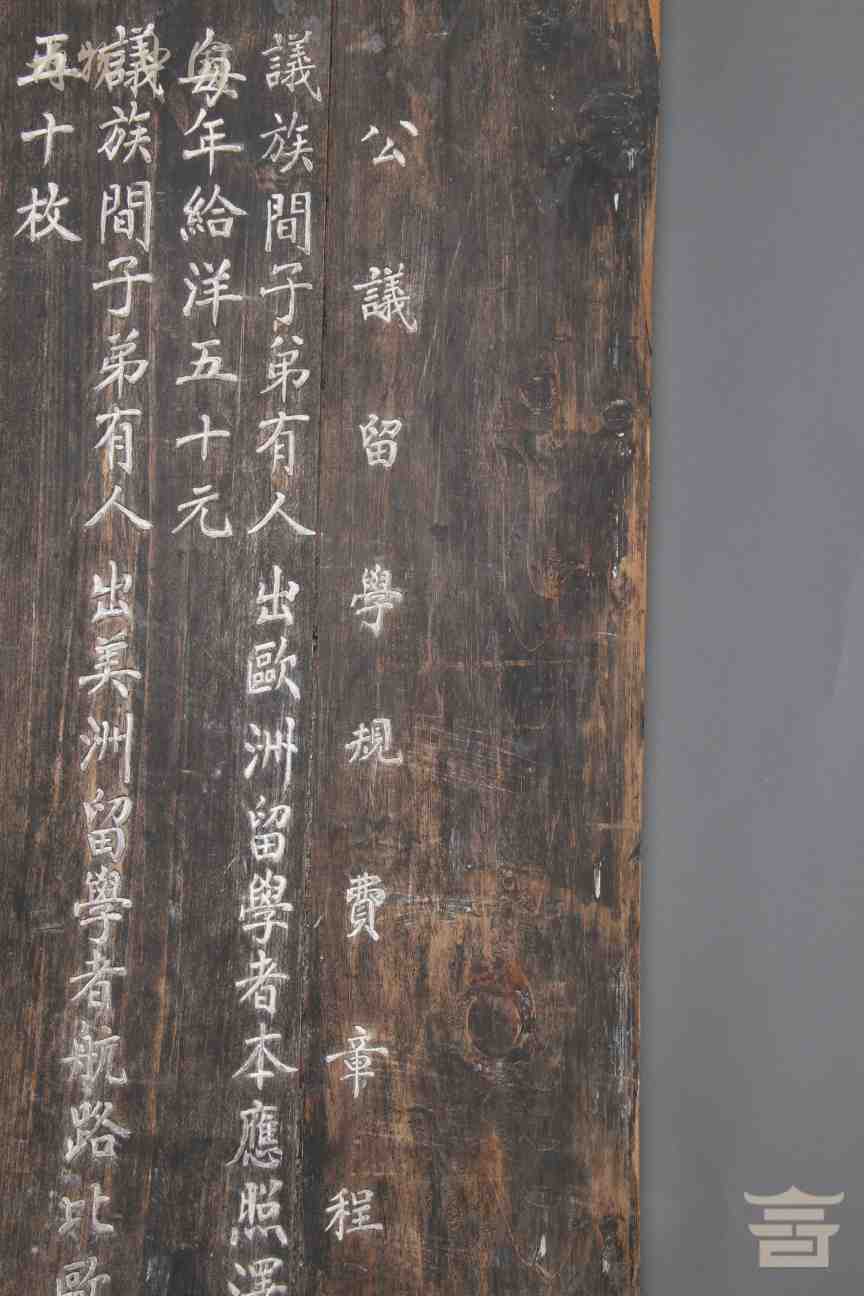 公議留學規費章程
議族間子弟有人出歐洲留學者本應照澤
每年給洋五十元
議族間子弟有人出美洲留學者航路比歐
五十枚